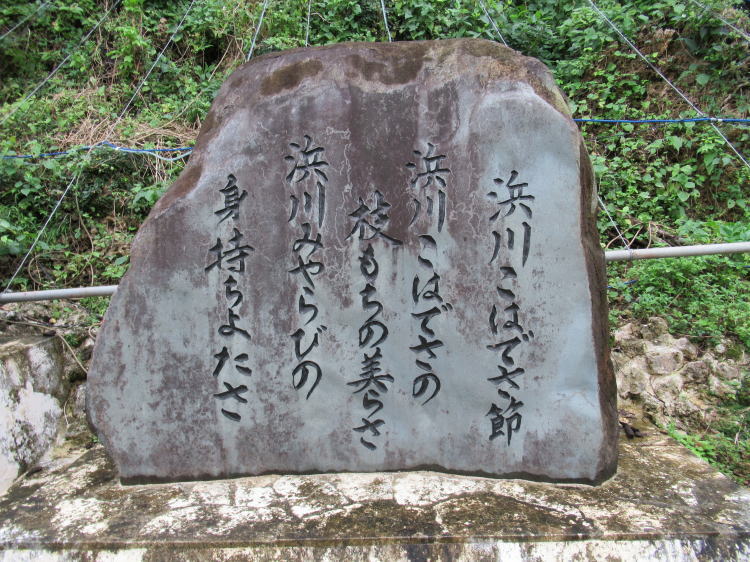 浜川こはでさ節
浜川こはでさの
枝もちの美らさ
浜川みやらびの
身持ちよたさ